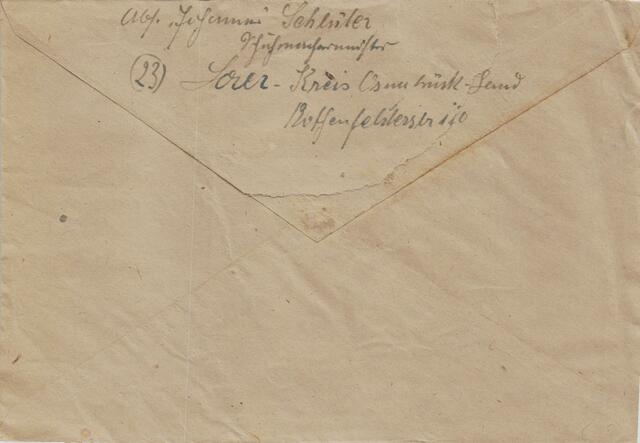 Abs. Johannes Schlüter
Schuhmachermeister
(23) Loxer - Kreis Osnabrück-Land
Rothenfelderstr 110